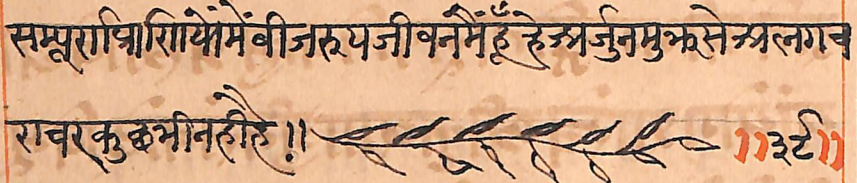 सम्पूर्णप्राणियोंमेंबीजरूपजीवनमैंहूँ हेअर्जुनमुझसेअलगच
राचरकुछभीनहीहै!! ॥३९॥